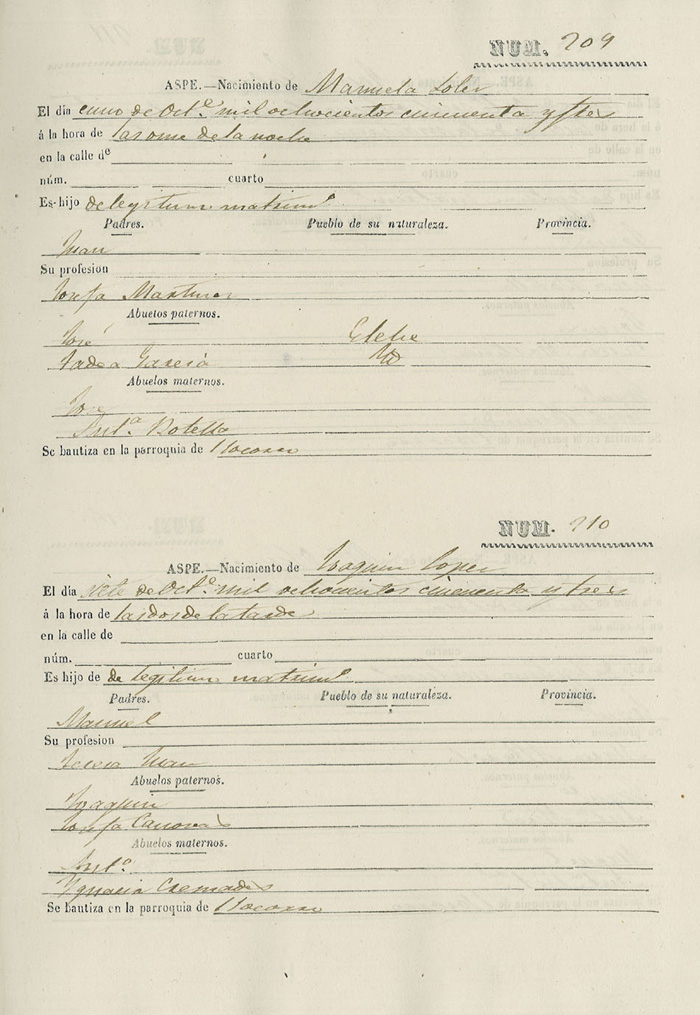 NUM. 209
ASPE.—Nacimiento de Manuela Soler
El dia cinco de Oct.e mil ochocientos cincuenta y tres
á la hora de las once de la noche
en la calle de
núm. cuarto
Es hijo de legitimo matrim.o
Padres. Pueblo de su naturaleza. Provincia.
Juan
Su profesion
Josefa Martinez
Abuelos paternos.
José Elche
Tadea Garcia Id
Abuelos maternos.
José
Ant.a Botella
Se bautiza en la parroquia de Socorro
NUM. 210
ASPE.—Nacimiento de Joaquin Lopez
El día siete de Oct.e mil ochocientos cincuenta y tres
á la hora de las dos de la tarde
en la calle de
núm. cuarto
Es hijo de de legitimo matrim.o
Padres. Pueblo de su naturaleza. Provincia.
Manuel
Su profesion
Teresa Juan
Abuelos paternos.
Joaquin
Josefa Canovas
Abuelos maternos.
Ant.o
Ygnacia Cremades
Se bautiza en la parroquia de Socorro